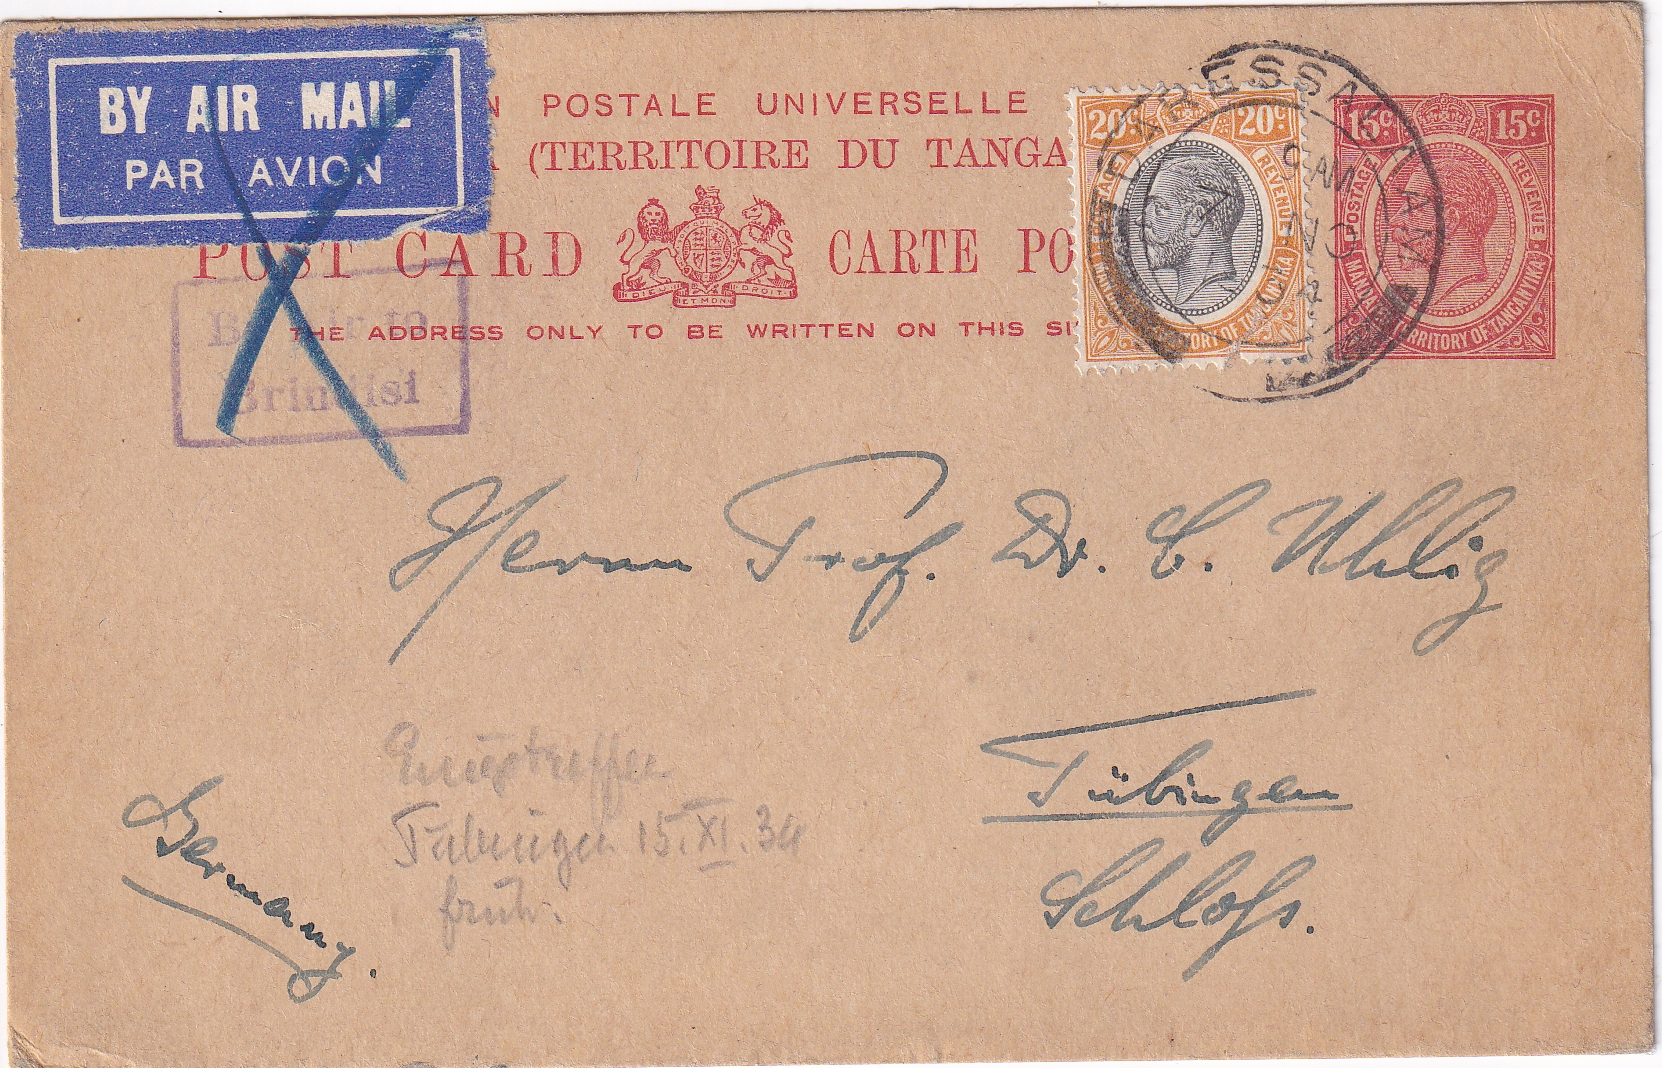 BY AIR MAIL
PAR AVION
N POSTALE UNIVERSELLE
A (TERRITOIRE DU TANGA
POST CARD CARTE PO
DIEU ET MON DROIT
THE ADDRESS ONLY TO BE WRITTEN ON THIS SI
By air to
Brindisi
20c 20c
REVENUE
15c 15c
POSTAGE REVENUE
MANDATED TERRITORY OF TANGANYIKA
DAR-ES-SALAAM
AM
Herrn Prof. Dr. C. Uhlig
Tübingen
Schloß.
Germany.
Tübingen 15.XI.34
früh.